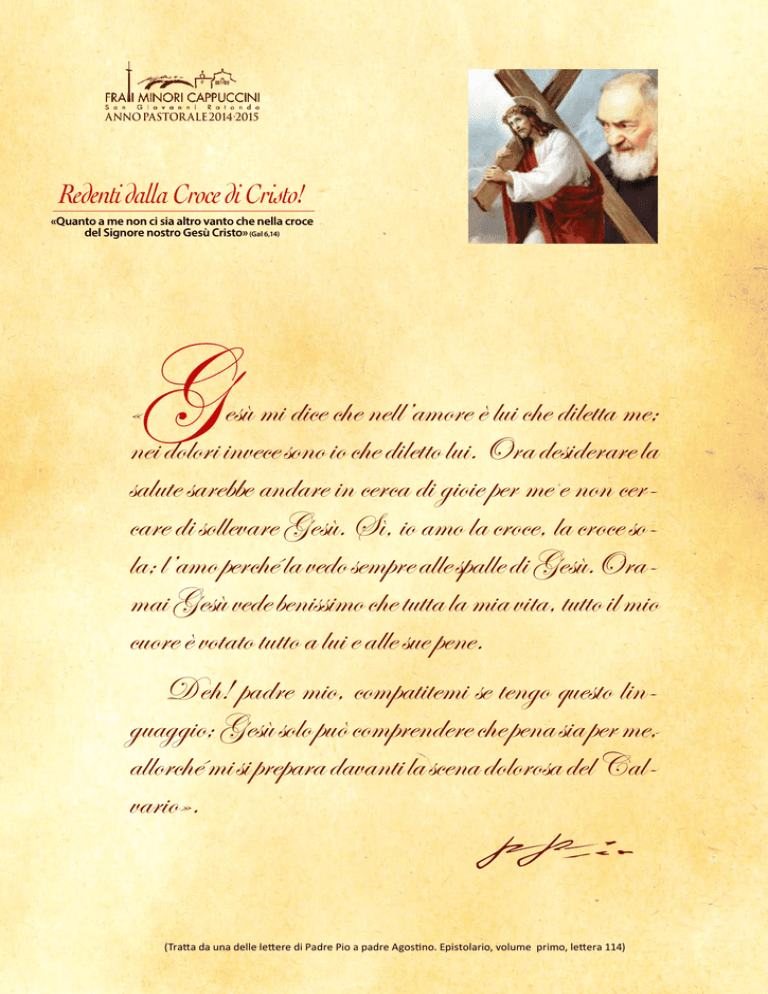 FRATI MINORI CAPPUCCINI
San Giovanni Rotondo
ANNO PASTORALE 2014·2015
Redenti dalla Croce di Cristo!
«Quanto a me non ci sia altro vanto che nella croce
del Signore nostro Gesù Cristo» (Gal 6,14)
«Gesù mi dice che nell'amore è lui che diletta me;
nei dolori invece sono io che diletto lui. Ora desiderare la
salute sarebbe andare in cerca di gioie per me e non cer-
care di sollevare Gesù. Sì, io amo la croce, la croce so-
la; l'amo perché la vedo sempre alle spalle di Gesù. Ora-
mai Gesù vede benissimo che tutta la mia vita, tutto il mio
cuore è votato tutto a lui e alle sue pene.
Deh! padre mio, compatitemi se tengo questo lin-
guaggio; Gesù solo può comprendere che pena sia per me,
allorché mi si prepara davanti la scena dolorosa del Cal-
vario».
(Tratta da una delle lettere di Padre Pio a padre Agostino. Epistolario, volume primo, lettera 114)